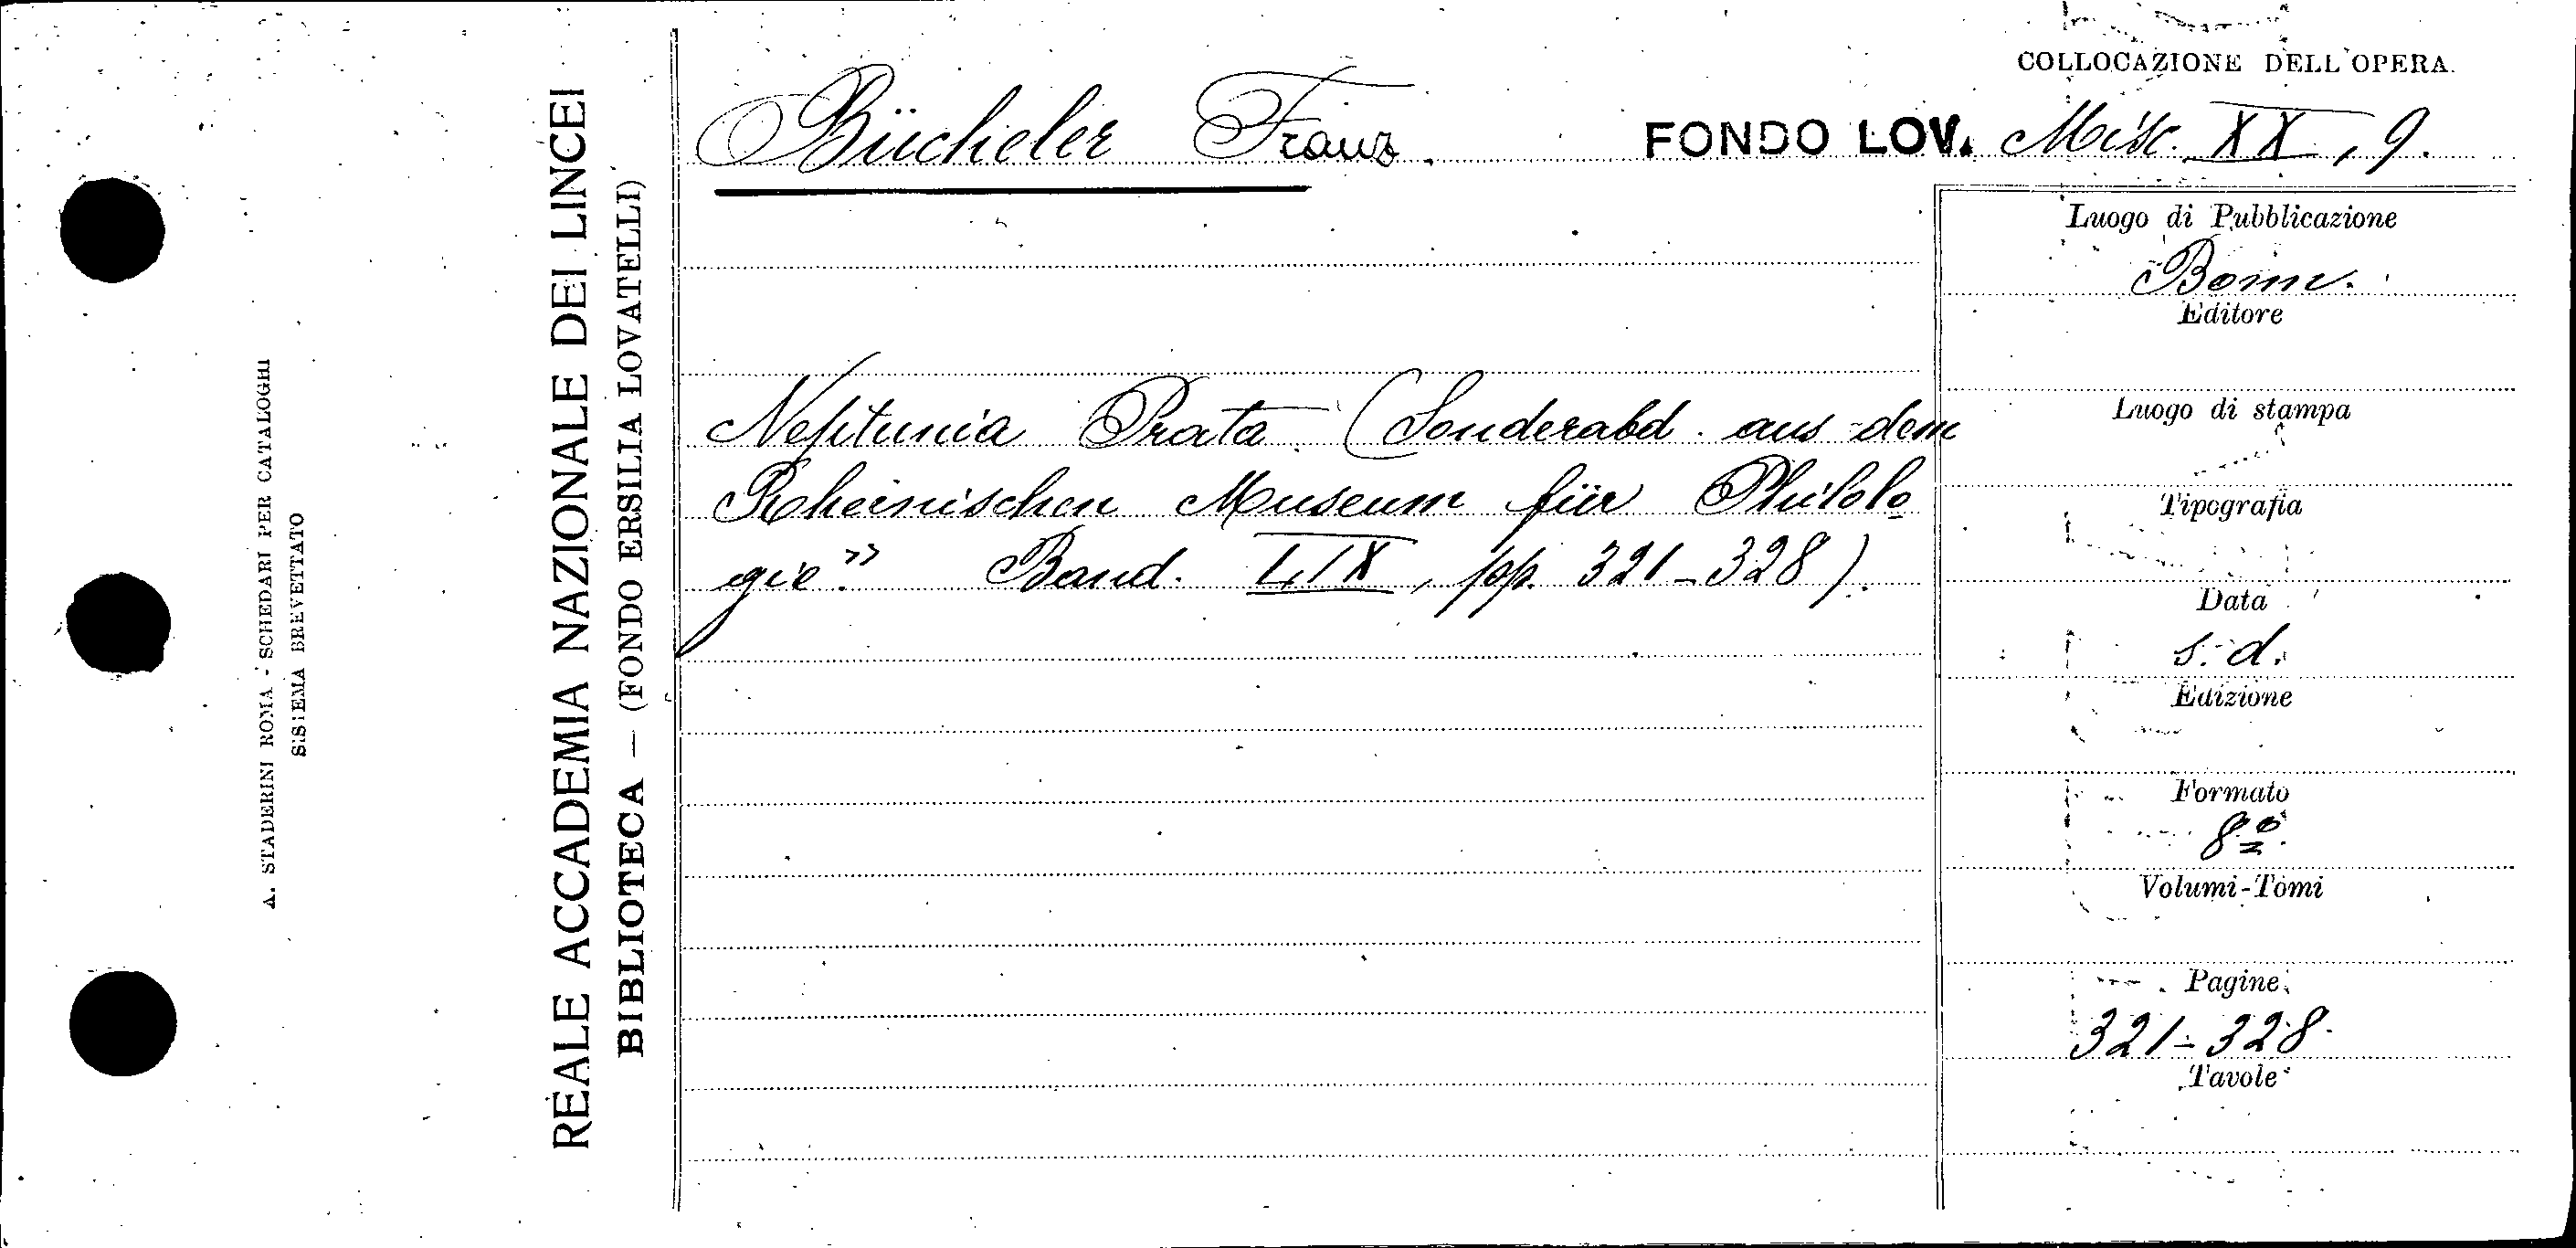 COLLOCAZIONE DELL'OPERA.
Bücheler Franz. FONDO LOV. Misc. XX, 9.
Neptunia Prata (Sonderabd. aus dem
Rheinischen Museum für Philolo
gie" Band. LIX, pp. 321-328).
Luogo di Pubblicazione
Bonn.
Editore
Luogo di stampa
Tipografia
Data
s. d.
Edizione
Formato
8º
Volumi-Tomi
Pagine
321-328
Tavole
REALE ACCADEMIA NAZIONALE DEI LINCEI
BIBLIOTECA — (FONDO ERSILIA LOVATELLI)
A. STADERINI ROMA - SCHEDARI PER CATALOGHI
SISTEMA BREVETTATO